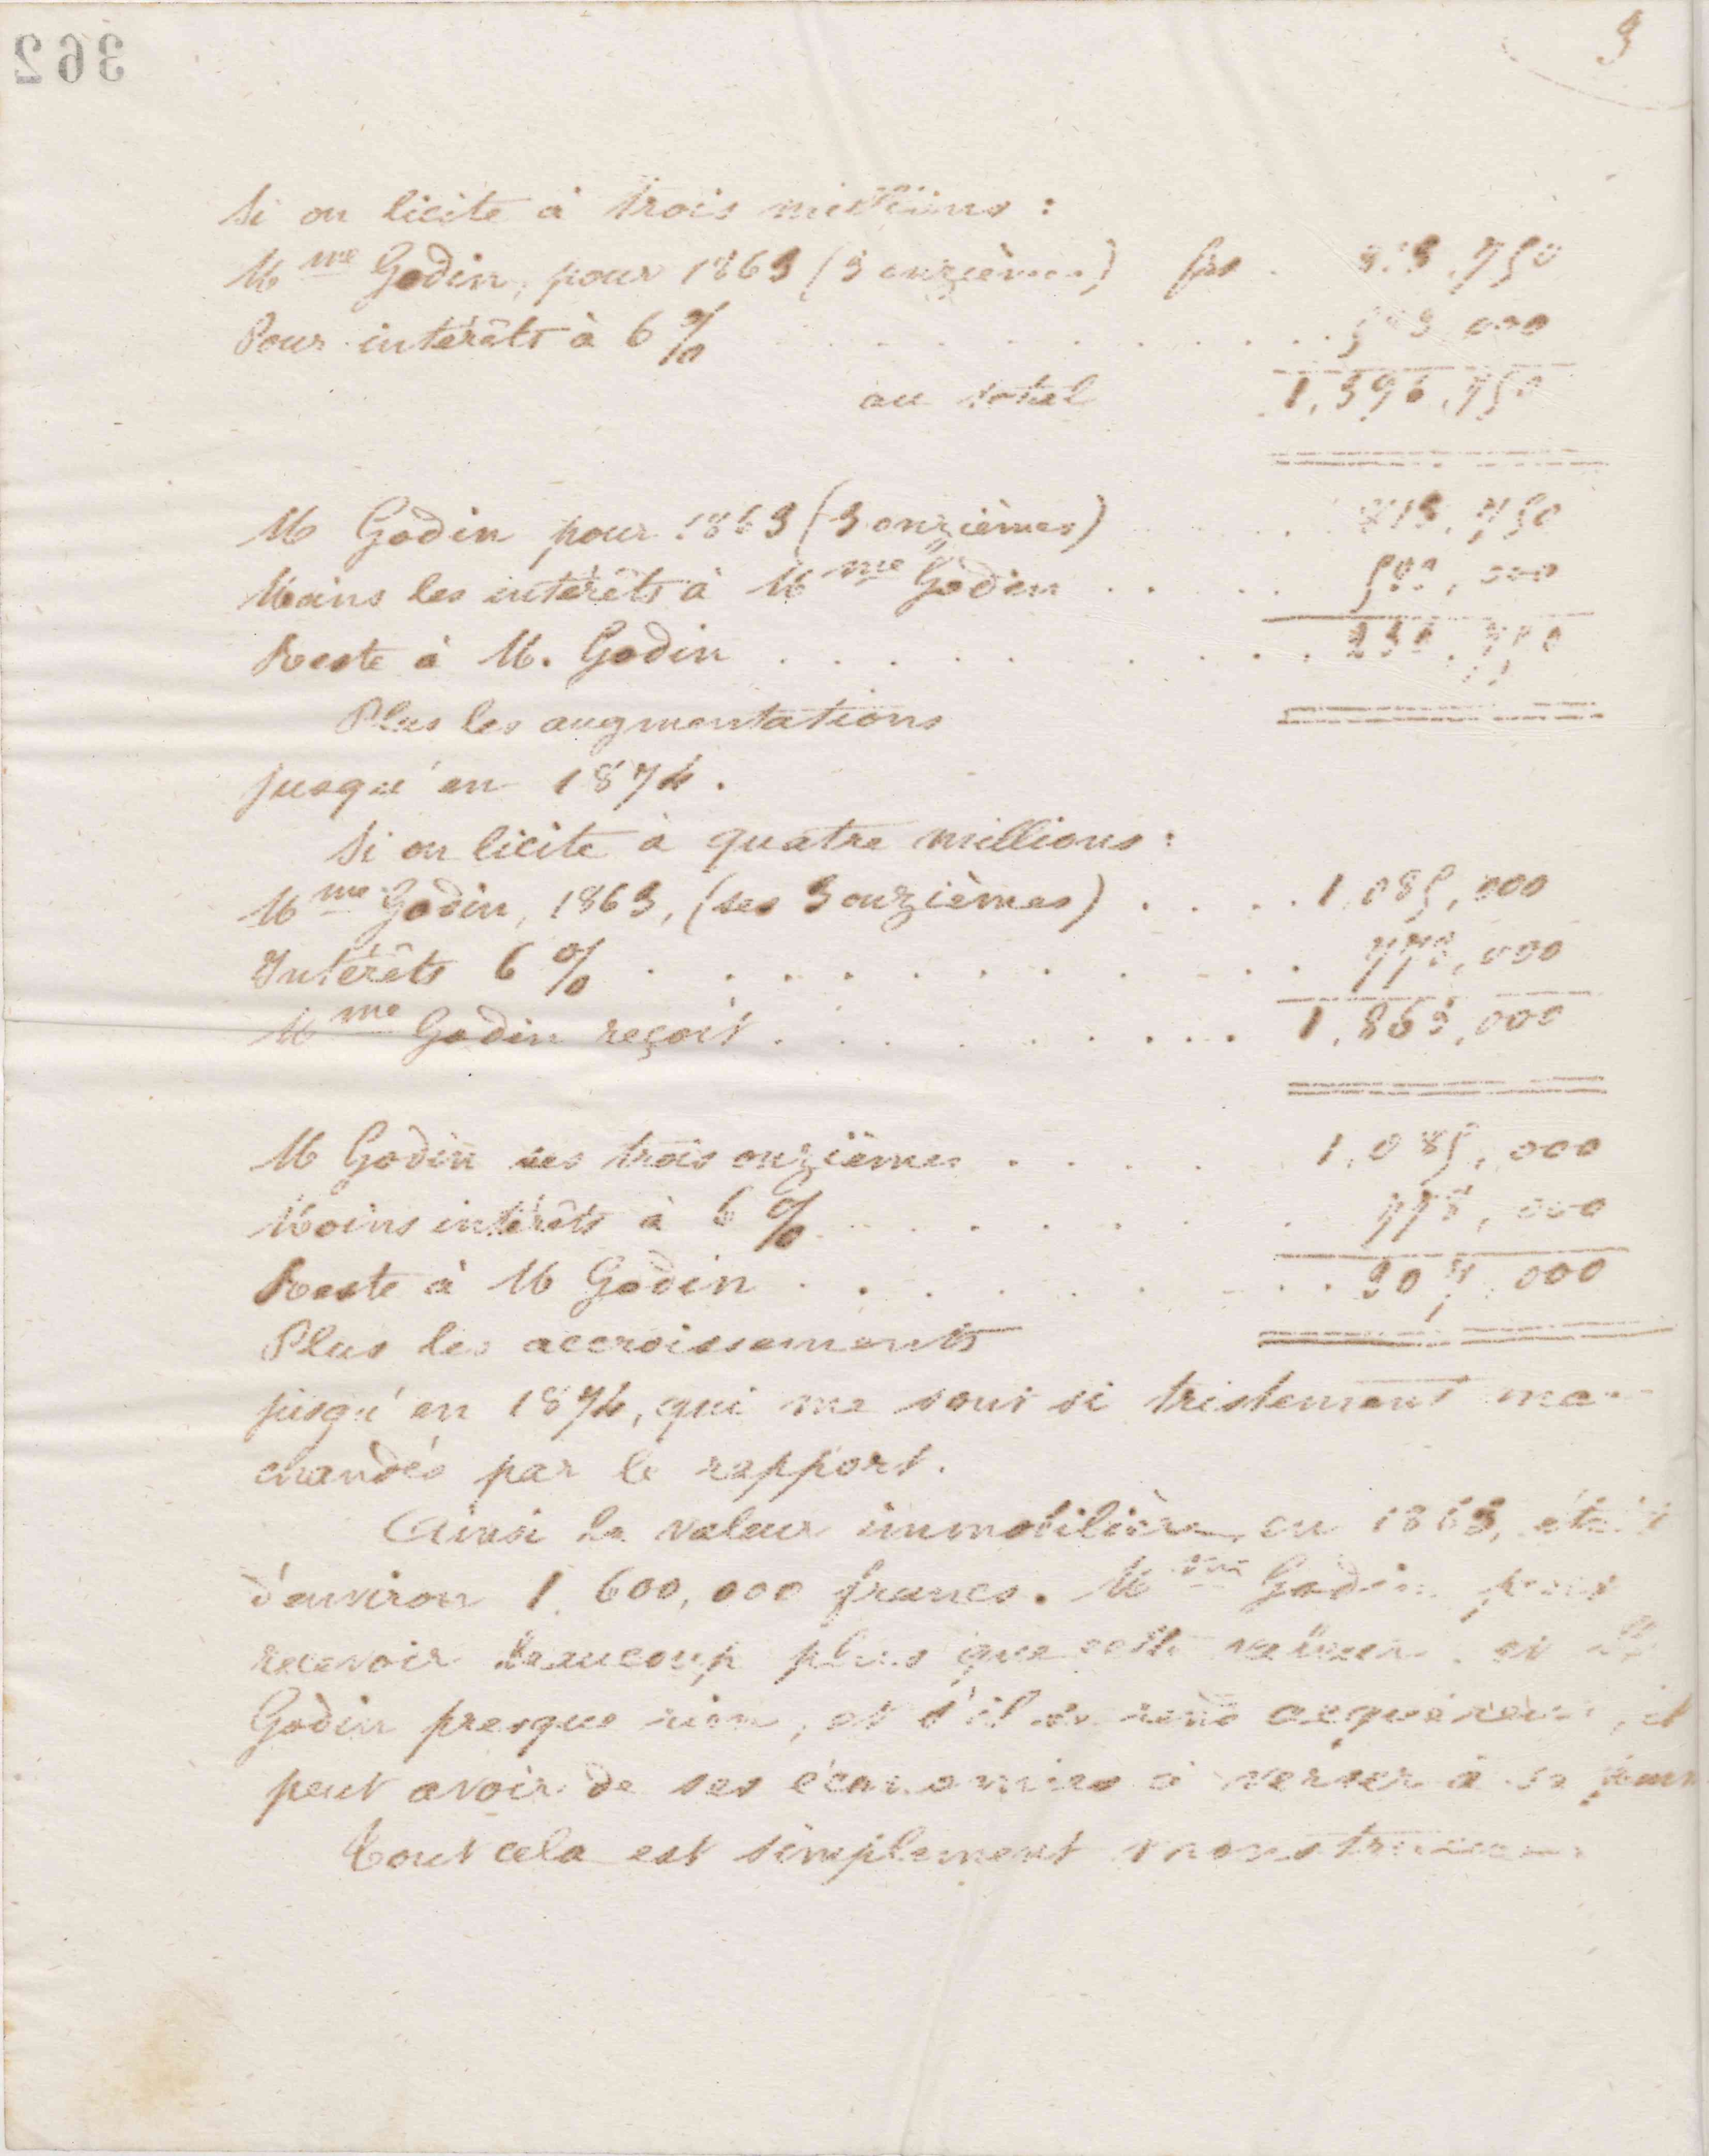 362
3
Si on licite à trois millions :
Mme Godin, pour 1863 (3 onzièmes) frs . 813.750
Pour intérêts à 6 % . . . . . . . . . . 583.000
au total 1,396,750
M Godin pour 1863 (3 onzièmes) . . . 813,750
Moins les intérêts à Mme Godin . . . . 583,000
Reste à M. Godin . . . . . . . . . 230,750
Plus les augmentations
jusqu'en 1874.
Si on licite à quatre millions :
Mme Godin, 1863, (ses 3 onzièmes) . . . . 1,085,000
Intérêts 6 % . . . . . . . . . . . 778,000
Mme Godin reçoit . . . . . . . . . 1,863,000
M Godin ses trois onzièmes . . . . 1,085,000
Moins intérêts à 6 % . . . . . . . 778,000
Reste à M Godin . . . . . . . . . 307,000
Plus les accroissements
jusqu'en 1874, qui me sont si tristement mar-
chandés par le rapport.
Ainsi la valeur immobilière, en 1863, était
d'environ 1,600,000 francs. Mme Godin peut
recevoir beaucoup plus que cette valeur, et M
Godin presque rien, et s'il se rend acquéreur, il
peut avoir de ses économies à verser à sa femme
Tout cela est simplement monstrueux